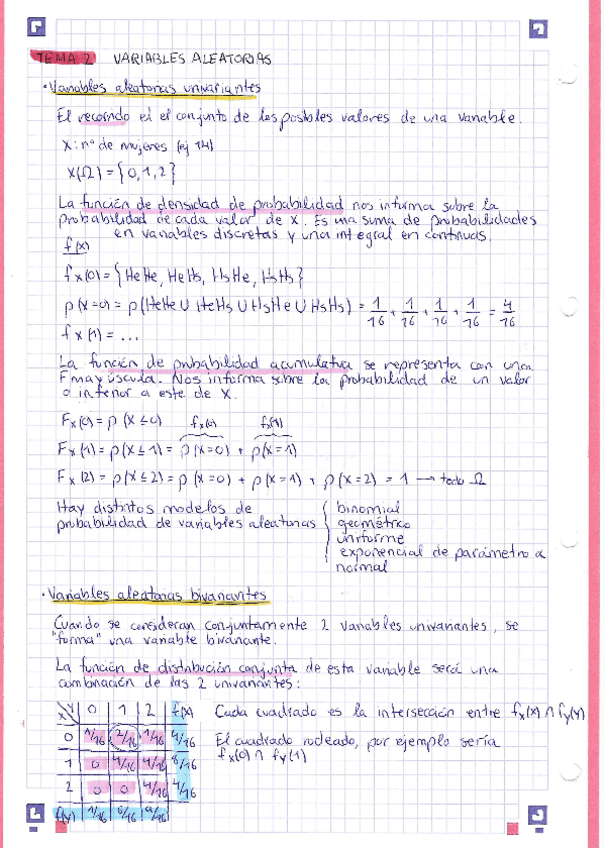 TEMA 2 VARIABLES ALEATORIAS
· Variables aleatorias univariantes
El recorrido es el conjunto de los posibles valores de una variable.
X: nº de mujeres (ej 14)
X(Ω) = {0, 1, 2}
La función de densidad de probabilidad nos informa sobre la
probabilidad de cada valor de X. Es una suma de probabilidades
en variables discretas y una integral en continuas.
f(x)
fx(0) = {HeHe, HeHs, HsHe, HsHs}
p(X=0) = p(HeHe ∪ HeHs ∪ HsHe ∪ HsHs) = 1/16 + 1/16 + 1/16 + 1/16 = 4/16
fx(1) = ...
La función de probabilidad acumulativa se representa con una
F mayúscula. Nos informa sobre la probabilidad de un valor
o inferior a este de X.
Fx(0) = p(X ≤ 0) fx(0) fx(1)
Fx(1) = p(X ≤ 1) = p(X=0) + p(X=1)
Fx(2) = p(X ≤ 2) = p(X=0) + p(X=1) + p(X=2) = 1 → todo Ω
Hay distintos modelos de
probabilidad de variables aleatorias
binomial
geométrico
uniforme
exponencial de parámetro α
normal
· Variables aleatorias bivariantes
Cuando se consideran conjuntamente 2 variables univariantes, se
"forma" una variable bivariante.
La función de distribución conjunta de esta variable será una
combinación de las 2 univariantes:
X Y 0 1 2 f(x)
0 1/16 2/16 1/16 4/16
1 0 4/16 4/16 8/16
2 0 0 4/16 4/16
f(y) 1/16 6/16 9/16
Cada cuadrado es la intersección entre fx(x) ∩ fy(y)
El cuadrado rodeado, por ejemplo sería
fx(0) ∩ fy(1)